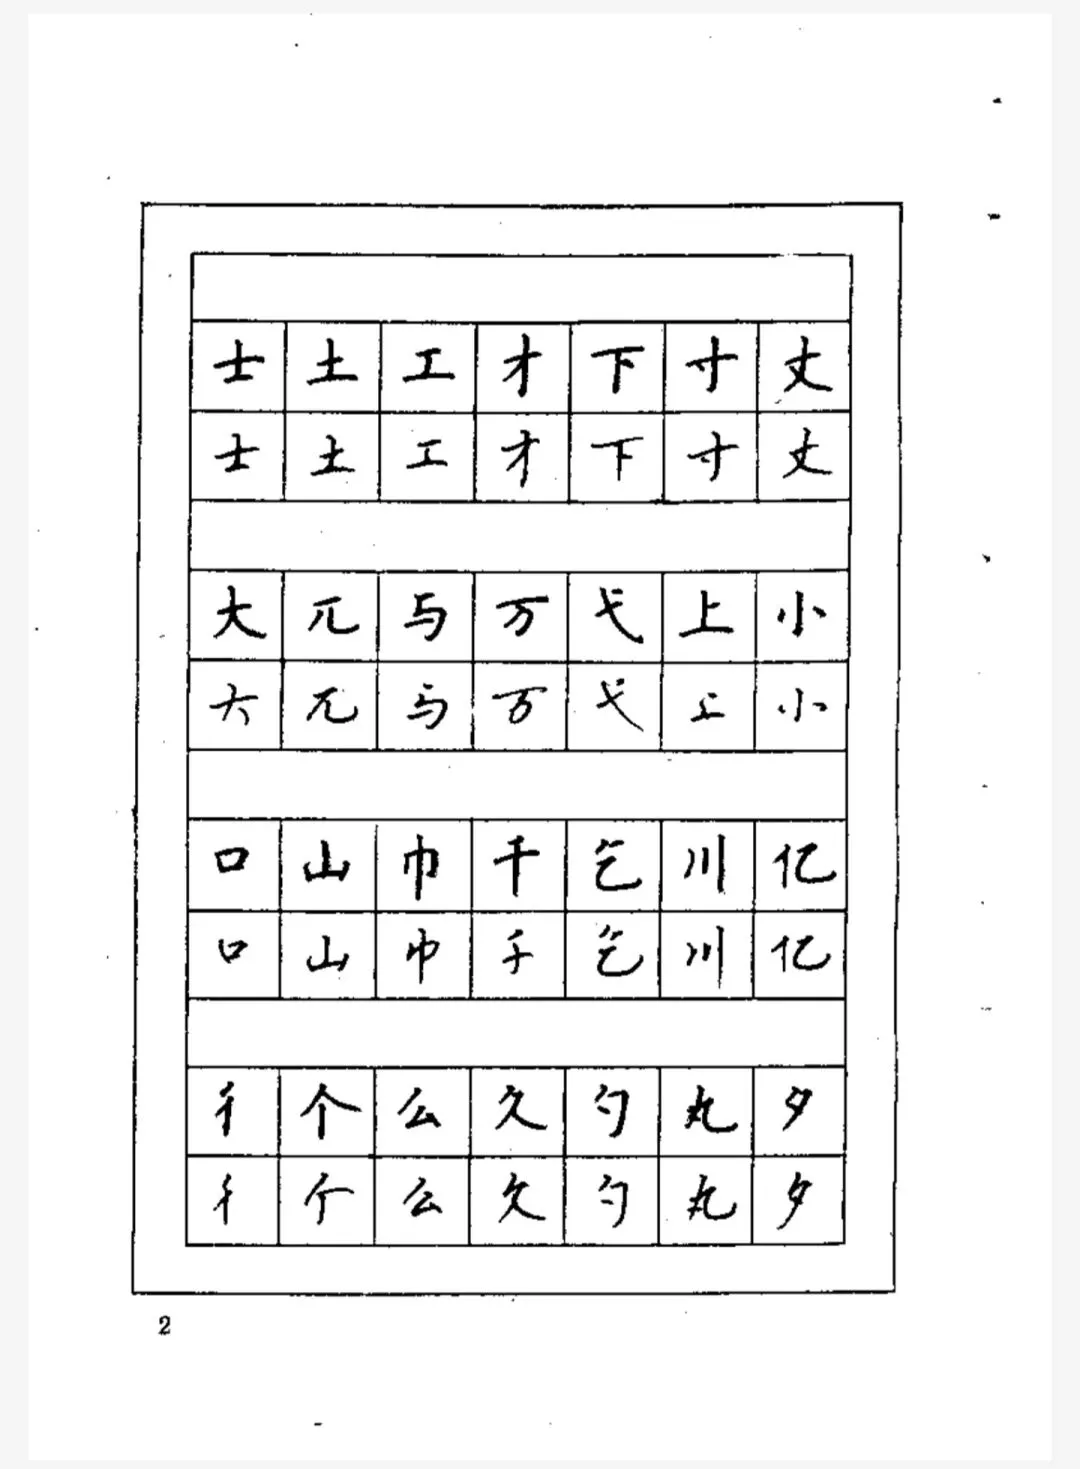 士土工才下寸丈
士土工才下寸丈
大兀与万弋上小
大兀与万弋上小
口山巾千乞川亿
口山巾千乞川亿
彳个么久勺丸夕
彳个么久勺丸夕
2